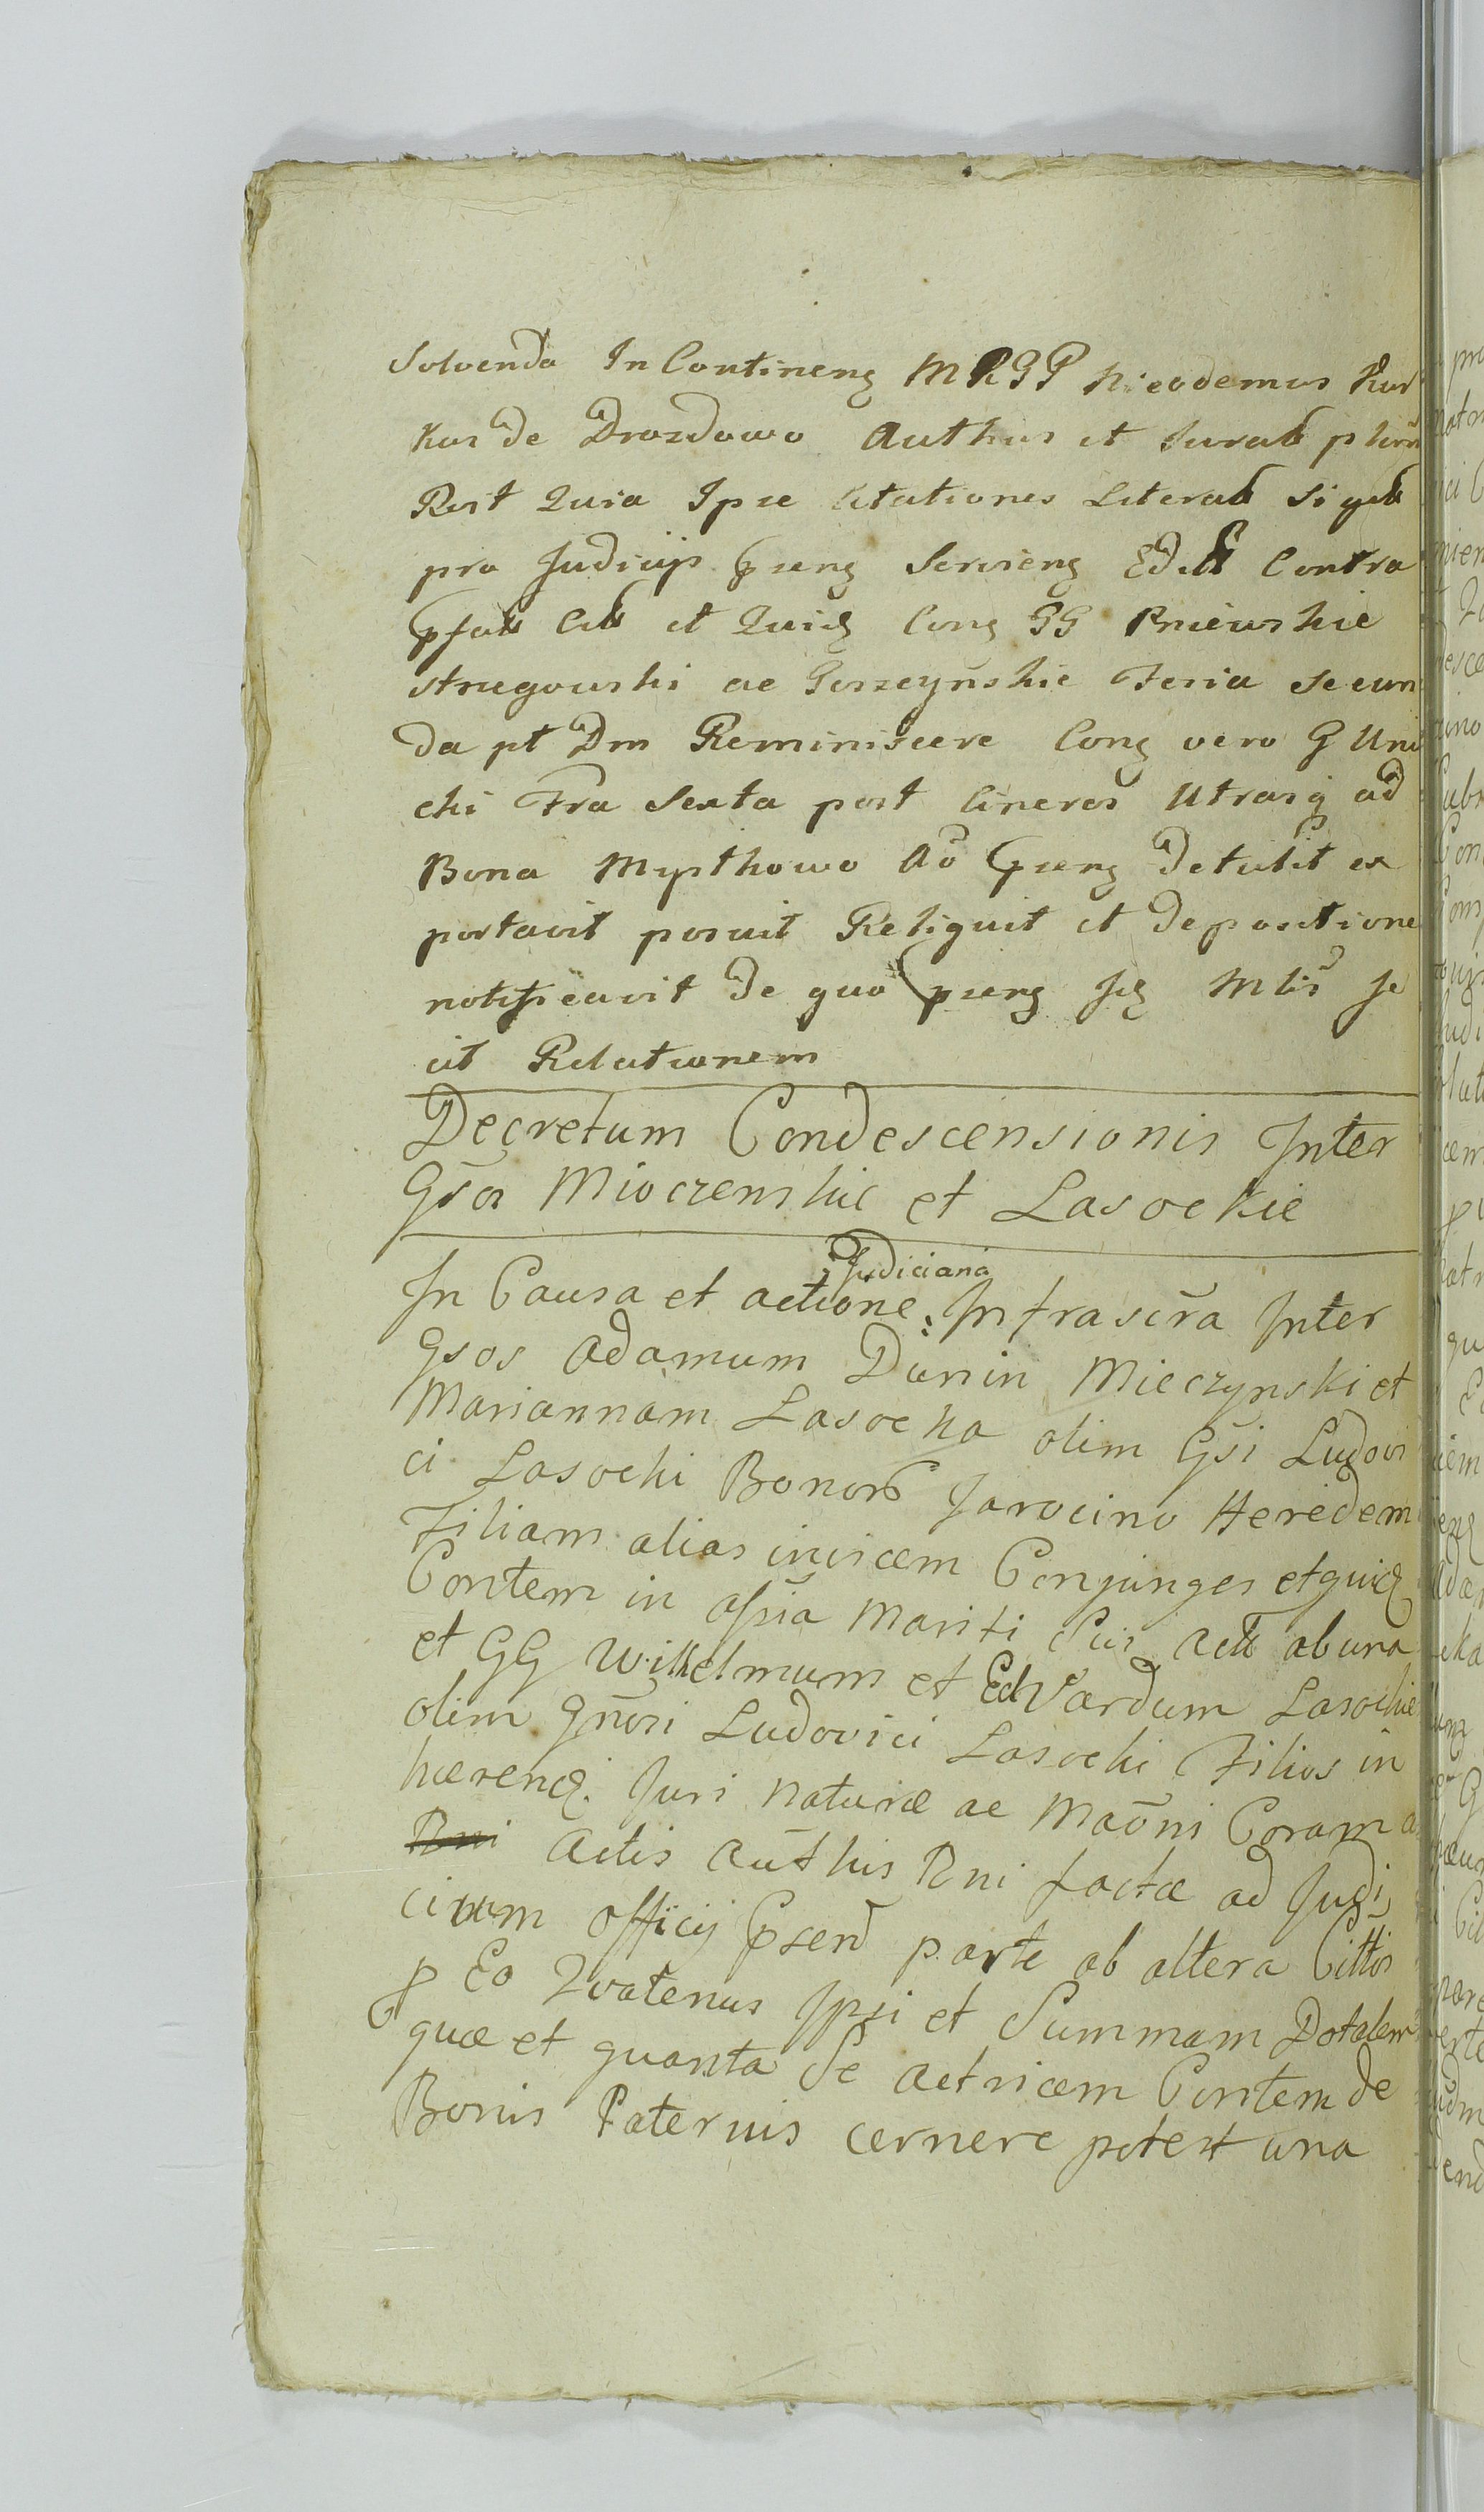 Solvenda In Contineng MRGP Nicodemus Kur
kus de Drozdowo Authus et Jurab plim
Rest Quia Ipse Citationes Literab Sigeb
pro Judicijs pseng Servieng Edit Contra
pfab Cib et Quicq Cong GG Pniewskie
Strzegowski ac Gorzeynskie Feria Secun
da pt Dm Reminiscere Cong vero G Uni
chi Fra Sexta post Cineres Utrasq ad
Bona Mysthowo Ao pseng Detulit ex
portavit posuit Reliquit et Depositione
notificavit De quo pseng Jcq Mlis fe
cit Relationem
Decretum Condescensionis Inter
Gsos Mioczenskie et Lasockie
In Causa et actione Judiciaria Infrascra Inter
Gsos Adamum Dunin Mieczynski et
Mariannam Lasocka olim Gsi Ludovi
ci Lasocki Bonorb Jarocino Heredem
Filiam alias invicem Conjunges et quicq
Contem in assia Mariti Sui Actt ab una
et GG Wilhelmum et Edvardum Lasockie
olim Gnosi Ludovici Lasocki Filios in
hærencq. Juri Naturæ ac Maoni Coram a
Rni Actis Authis Rni factæ ad Judi
cium Officij psend parte ab altera Cittos
p Eo Quatenus Ipsi et Summam Dotalem
quæ et quanta Se Actricem Contem de
Bonis Paternis cernere potest una